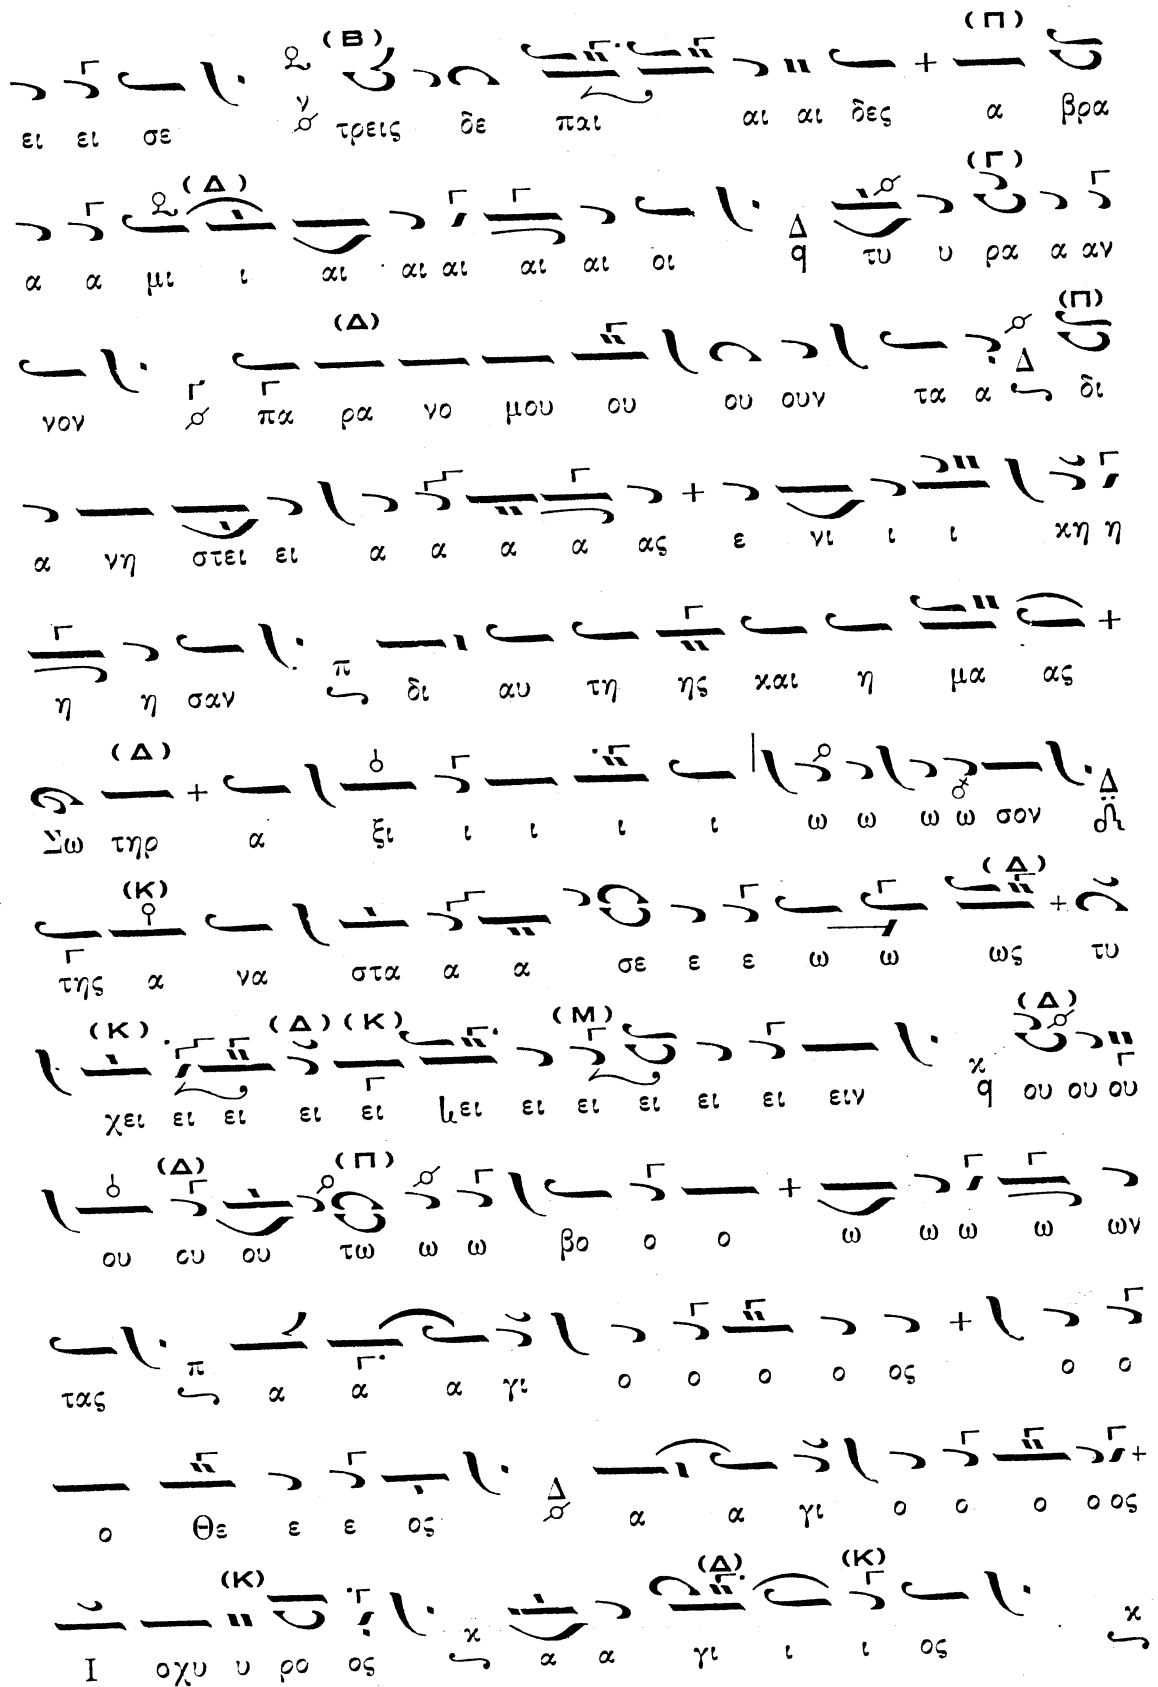 (Β) (Π)
ει ει σε ν τρεις δε παι αι αι δες α βρα
(Δ) (Γ)
α α μι ι αι αι αι αι αι οι Δ q τυ υ ρα α αν
(Δ) (Π)
νον Γ πα ρα νο μου ου ου ουν τα α Δ δι
α νη στει ει α α α α ας ε νι ι ι κη η
η η σαν π δι αυ τη ης και η μα ας
(Δ)
Σω τηρ α ξι ι ι ι ι ω ω ω ω σον Δ
(Κ) (Δ)
της α να στα α α σε ε ε ω ω ως τυ
(Κ) (Δ) (Κ) (Μ) (Δ)
χει ει ει ει ει ει ει ει ει ει ειν κ q ου ου ου
(Δ) (Π)
ου ου ου τω ω ω βο ο ο ω ω ω ω ων
τας π α α α γι ο ο ο ο ος ο ο
ο Θε ε ε ος Δ α α γι ο ο ο ο ος
(Κ) (Δ) (Κ)
Ι σχυ υ ρο ος κ α α γι ι ι ος κ